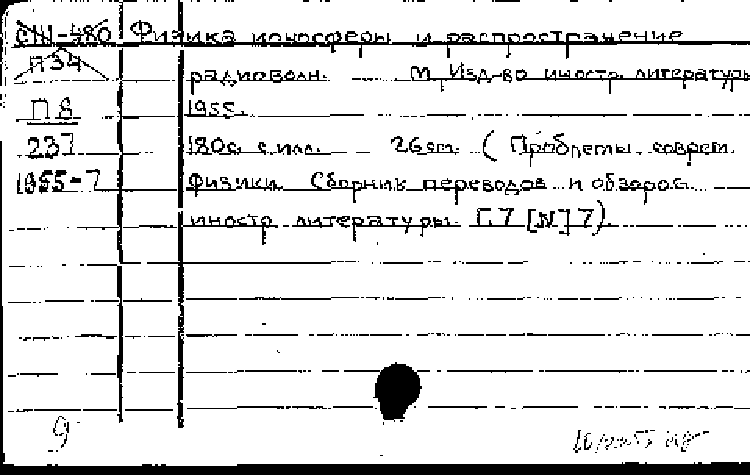 СМ-480 Физика ионосферы и распространение
П34 радиоволн. М. Изд-во иностр. литературы
П8 1955.
237 180с. с илл. 26 см. (Проблемы соврем.
1955-7 физики. Сборник переводов и обзоров
иностр литературы. Г.7 [N] 7).
9